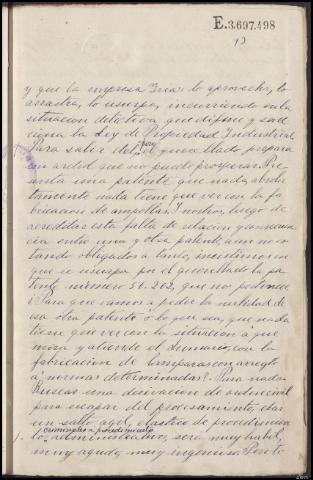 E.3.697.498
y que la empresa Irca: lo aprovecha, lo
arrastra, lo usurpa, incurriendo en la
situación delictiva que define y san-
ciona la Ley de Propiedad Industrial
Para salir del paso el querellado prepara
un ardid que no puede prosperar. Pre-
senta una patente que nada, absolu-
tamente nada tiene que ver con la fa-
bricación de ampollas. Y nosotros, luego de
acreditar esta falta de relación y concomitan-
cia entre una y otra patente, aún no es-
tando obligados a tanto, insistimos en
que se usurpa por el querellado la pa-
tente número 56.262, que nos pertenece
¿Para qué vamos a pedir la nulidad de
esa otra patente o lo que sea, que nada
tiene que ver con la situación a que
mira y atiende el sumario, con la
fabricación de lámparas con arreglo
a normas determinadas?. Para nada
Buscar una desviación
para escapar del procesamiento, dar
un salto ágil, elástico de procedimientos
criminales a procedimientos
administrativos, será muy hábil,
muy agudo, muy ingenioso. Pero lo